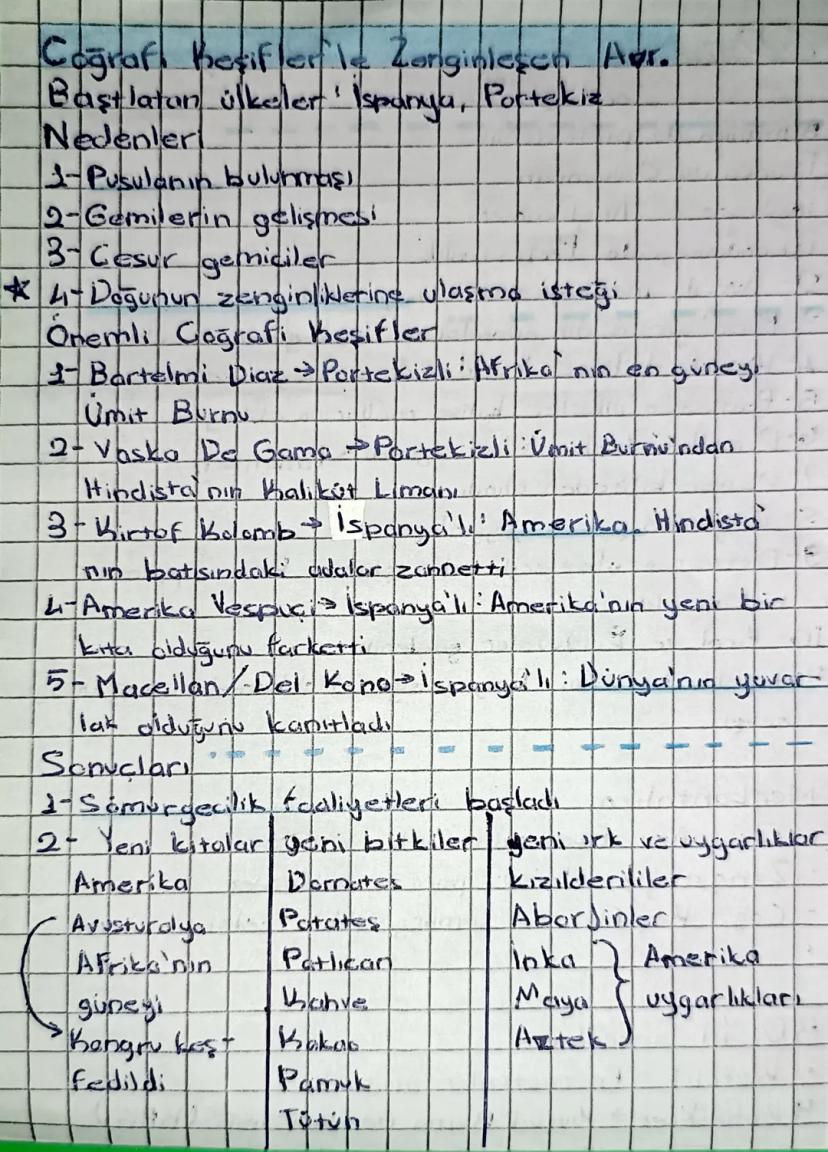 Coğrafi Keşifler'le Zenginleşen Avr.
Baştlatan ülkeler: İspanya, Portekiz
Nedenleri
1- Pusulanın bulunması
2- Gemilerin gelişmesi
3- Cesur gemiciler
* 4- Doğunun zenginliklerine ulaşma isteği
Önemli Coğrafi Keşifler
1- Bartelmi Diaz → Portekizli: Afrika'nın en güneyi
Ümit Burnu
2- Vasko De Gama → Portekizli: Ümit Burnu'ndan
Hindista'nın Kaliküt Limanı
3- Kirtof Kolomb → İspanya'lı: Amerika. Hindista'
nın batısındaki adalar zannetti
4- Amerika Vespuçi → İspanya'lı: Amerika'nın yeni bir
kıta olduğunu farketti
5- Macellan / Del Kano → İspanya'lı: Dünya'nın yuvar
lak olduğunu kanıtladı
Sonuçları
1- Sömürgecilik faaliyetleri başladı
2- Yeni kıtalar yeni bitkiler yeni ırk ve uygarlıklar
Amerika Domates Kızılderililer
Avusturalya Patates Aborjinler
Afrika'nın Patlıcan İnka } Amerika
güneyi Kahve Maya } uygarlıkları
Kongru keş- Kakao Aztek
fedildi Pamuk
Tütün